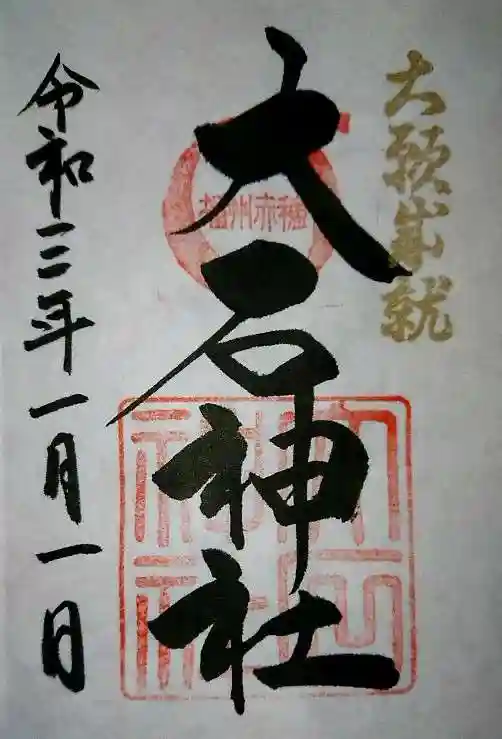 大願成就
播州赤穂
大石神社
大石神社
令和三年一月一日